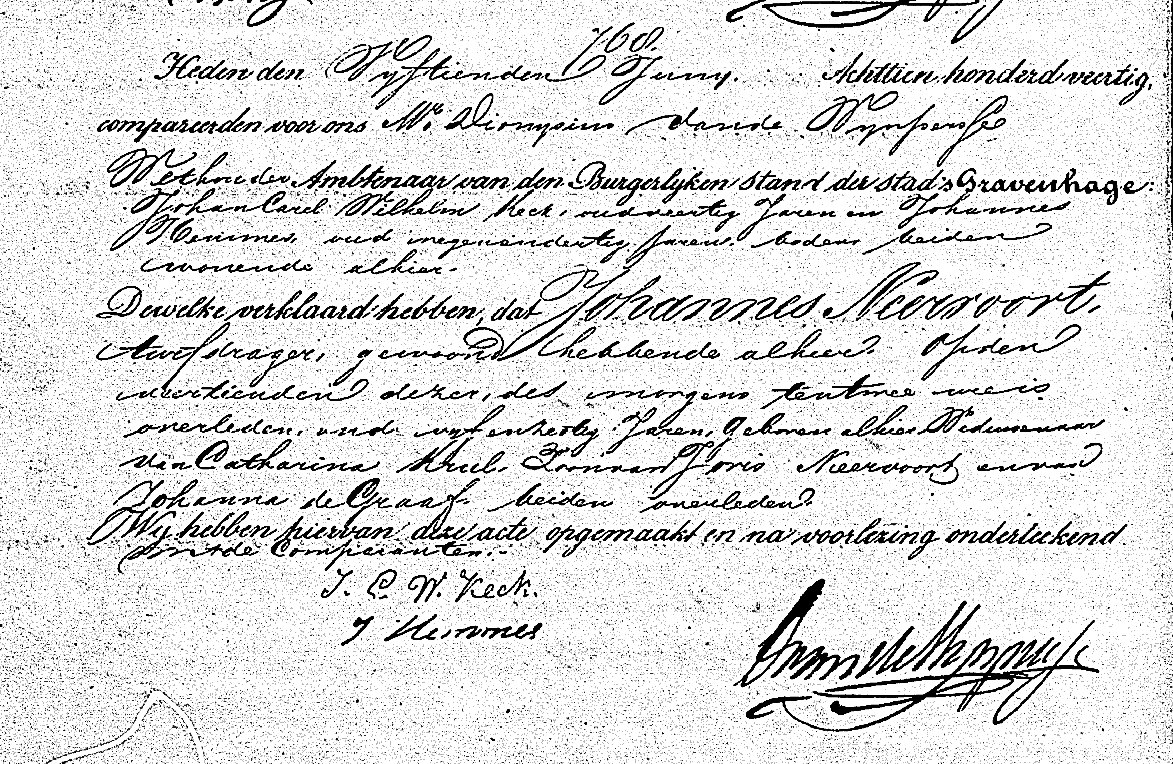 768.
Heden den Vyftienden Juny. Achttien honderd veertig,
compareerden voor ons Mr. Dionysius van de Wynpersse
Wethouder Ambtenaar van den Burgerlyken stand der stad 's Gravenhage:
Johan Carel Wilhelm Keck, oud veertig Jaren en Johannes
Hemmes, oud negenendertig Jaren, bodens beiden
wonende alhier.
Dewelke verklaard hebben, dat Johannes Neervoort,
turfdrager, gewoond hebbende alhier. Op den
veertienden dezer, des morgens ten twee ure is
overleden, oud vyfenzestig Jaren, Geboren alhier Weduwenaar
van Catharina Krul. Zoon van Joris Neervoort en van
Johanna de Graaf. beiden overleden.
Wy hebben hiervan deze acte opgemaakt en na voorlezing onderteekend
met de Comparanten.-
J. C. W. Keck.
J Hemmes